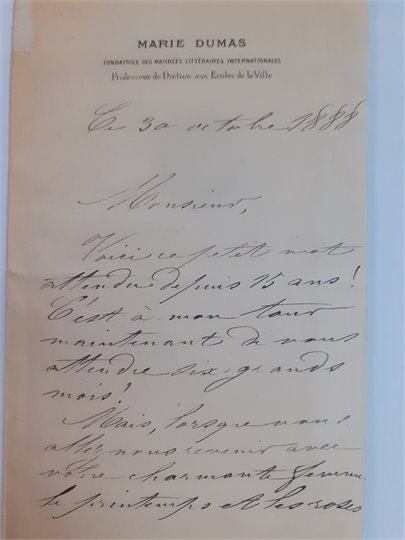 MARIE DUMAS
FONDATRICE DES MATINÉES LITTÉRAIRES INTERNATIONALES
Professeur de Diction aux Ecoles de la Ville
Ce 30 octobre 1888
Monsieur,
Voici ce petit mot
attendu depuis 15 ans!
C'est à mon tour
maintenant de vous
attendre six grands
mois!
Mais, lorsque vous
allez nous revenir avec
votre charmante femme
le printemps et les roses